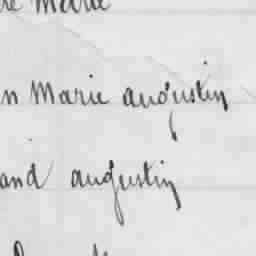 Marie
n Marie augustin
and augustin